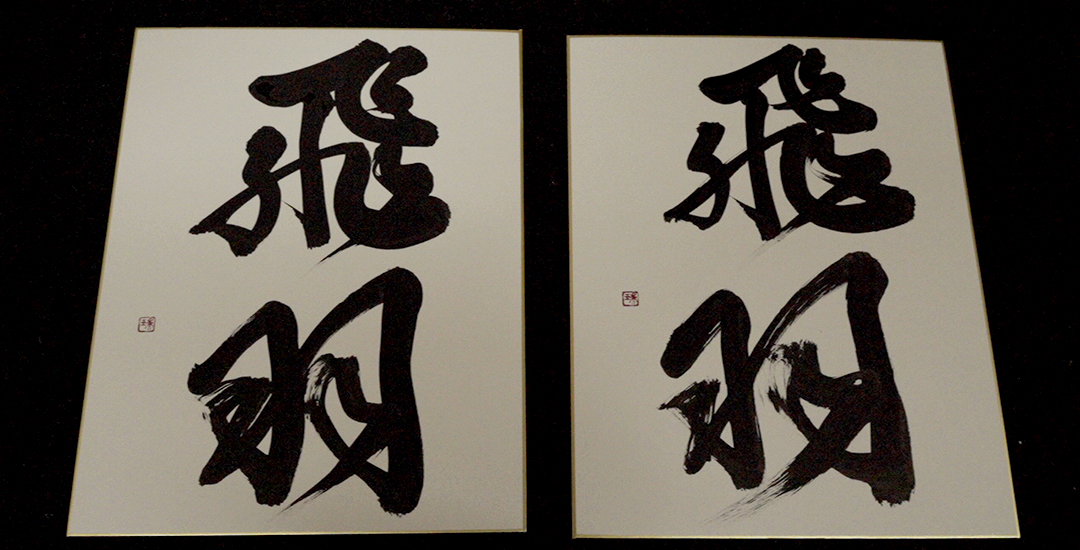 飛
羽
飛
羽